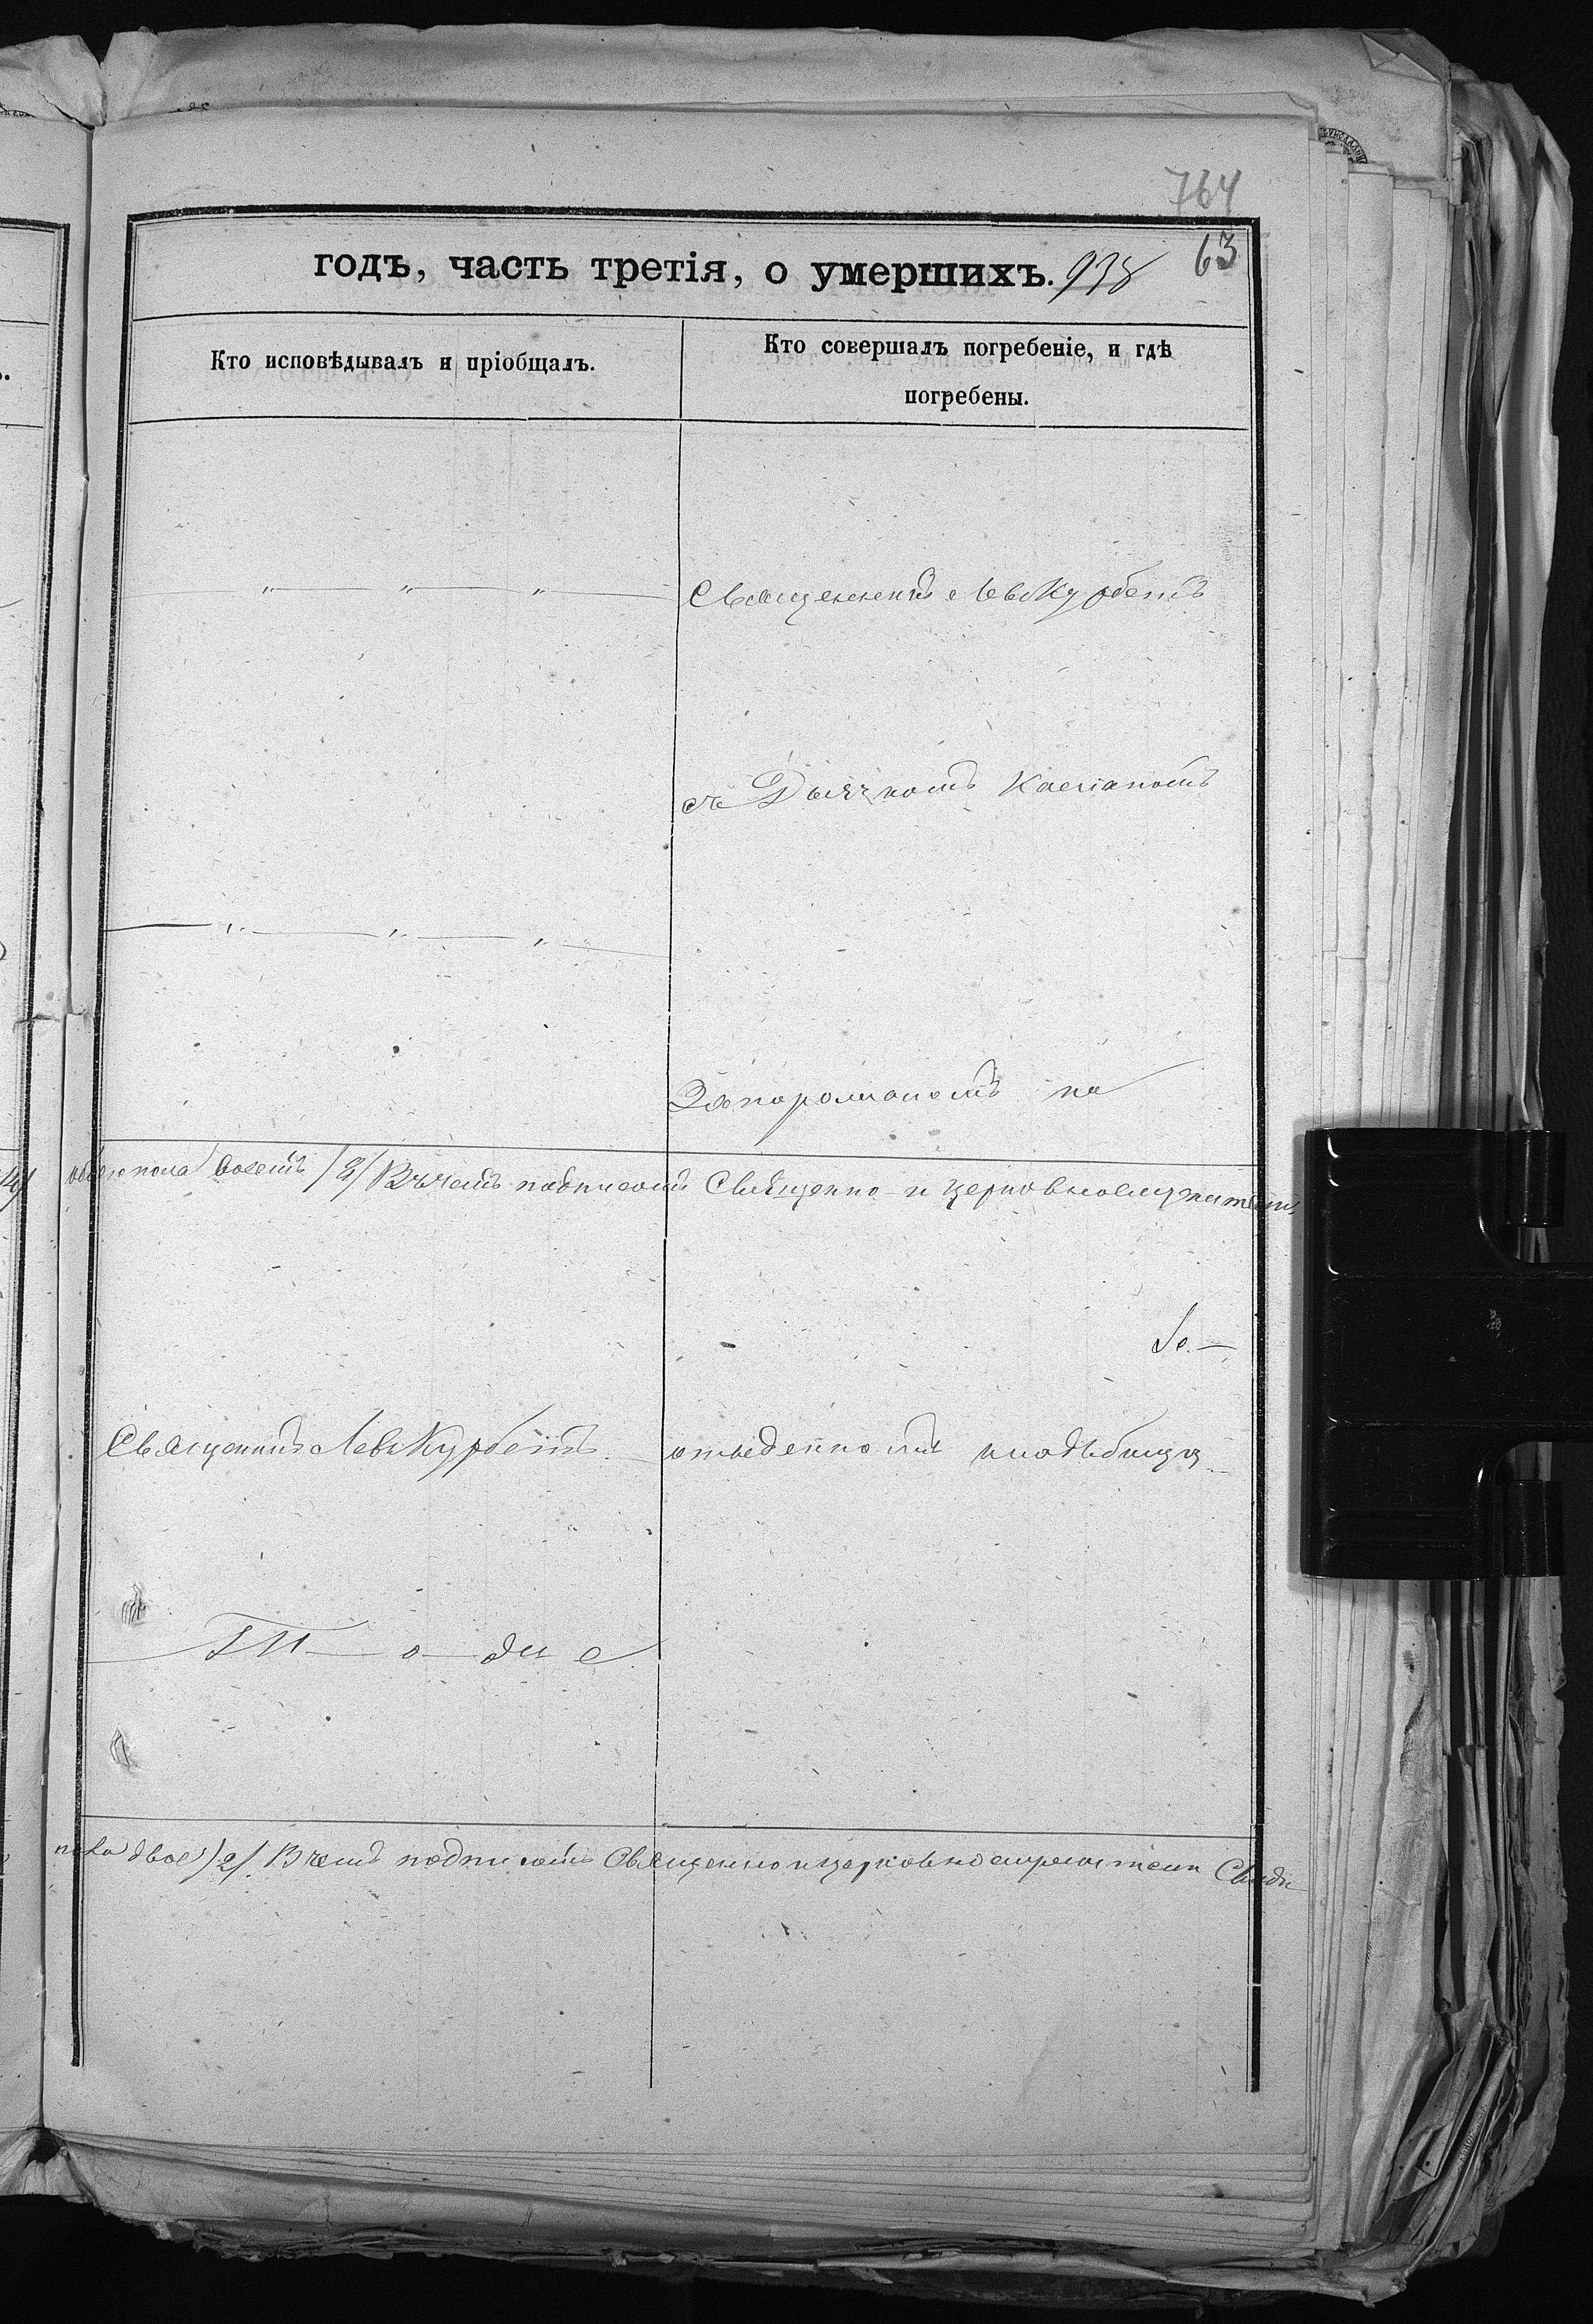 764
63
годъ, часть третія, о умершихъ. 938
Кто исповѣдывалъ и пріобщалъ.
Кто совершалъ погребеніе, и гдѣ
погребены.
Священникъ Левъ Курбетъ
съ Дьячкомъ
на
обоего пола восемь /8/ Въ чемъ подписомъ Священно и церковнослужители
Священникъ Левъ Курбетъ
отведенномъ кладбищѣ
То-же
двое /2/. В чемъ подписомъ Священно и церковнослужители Свидѣ